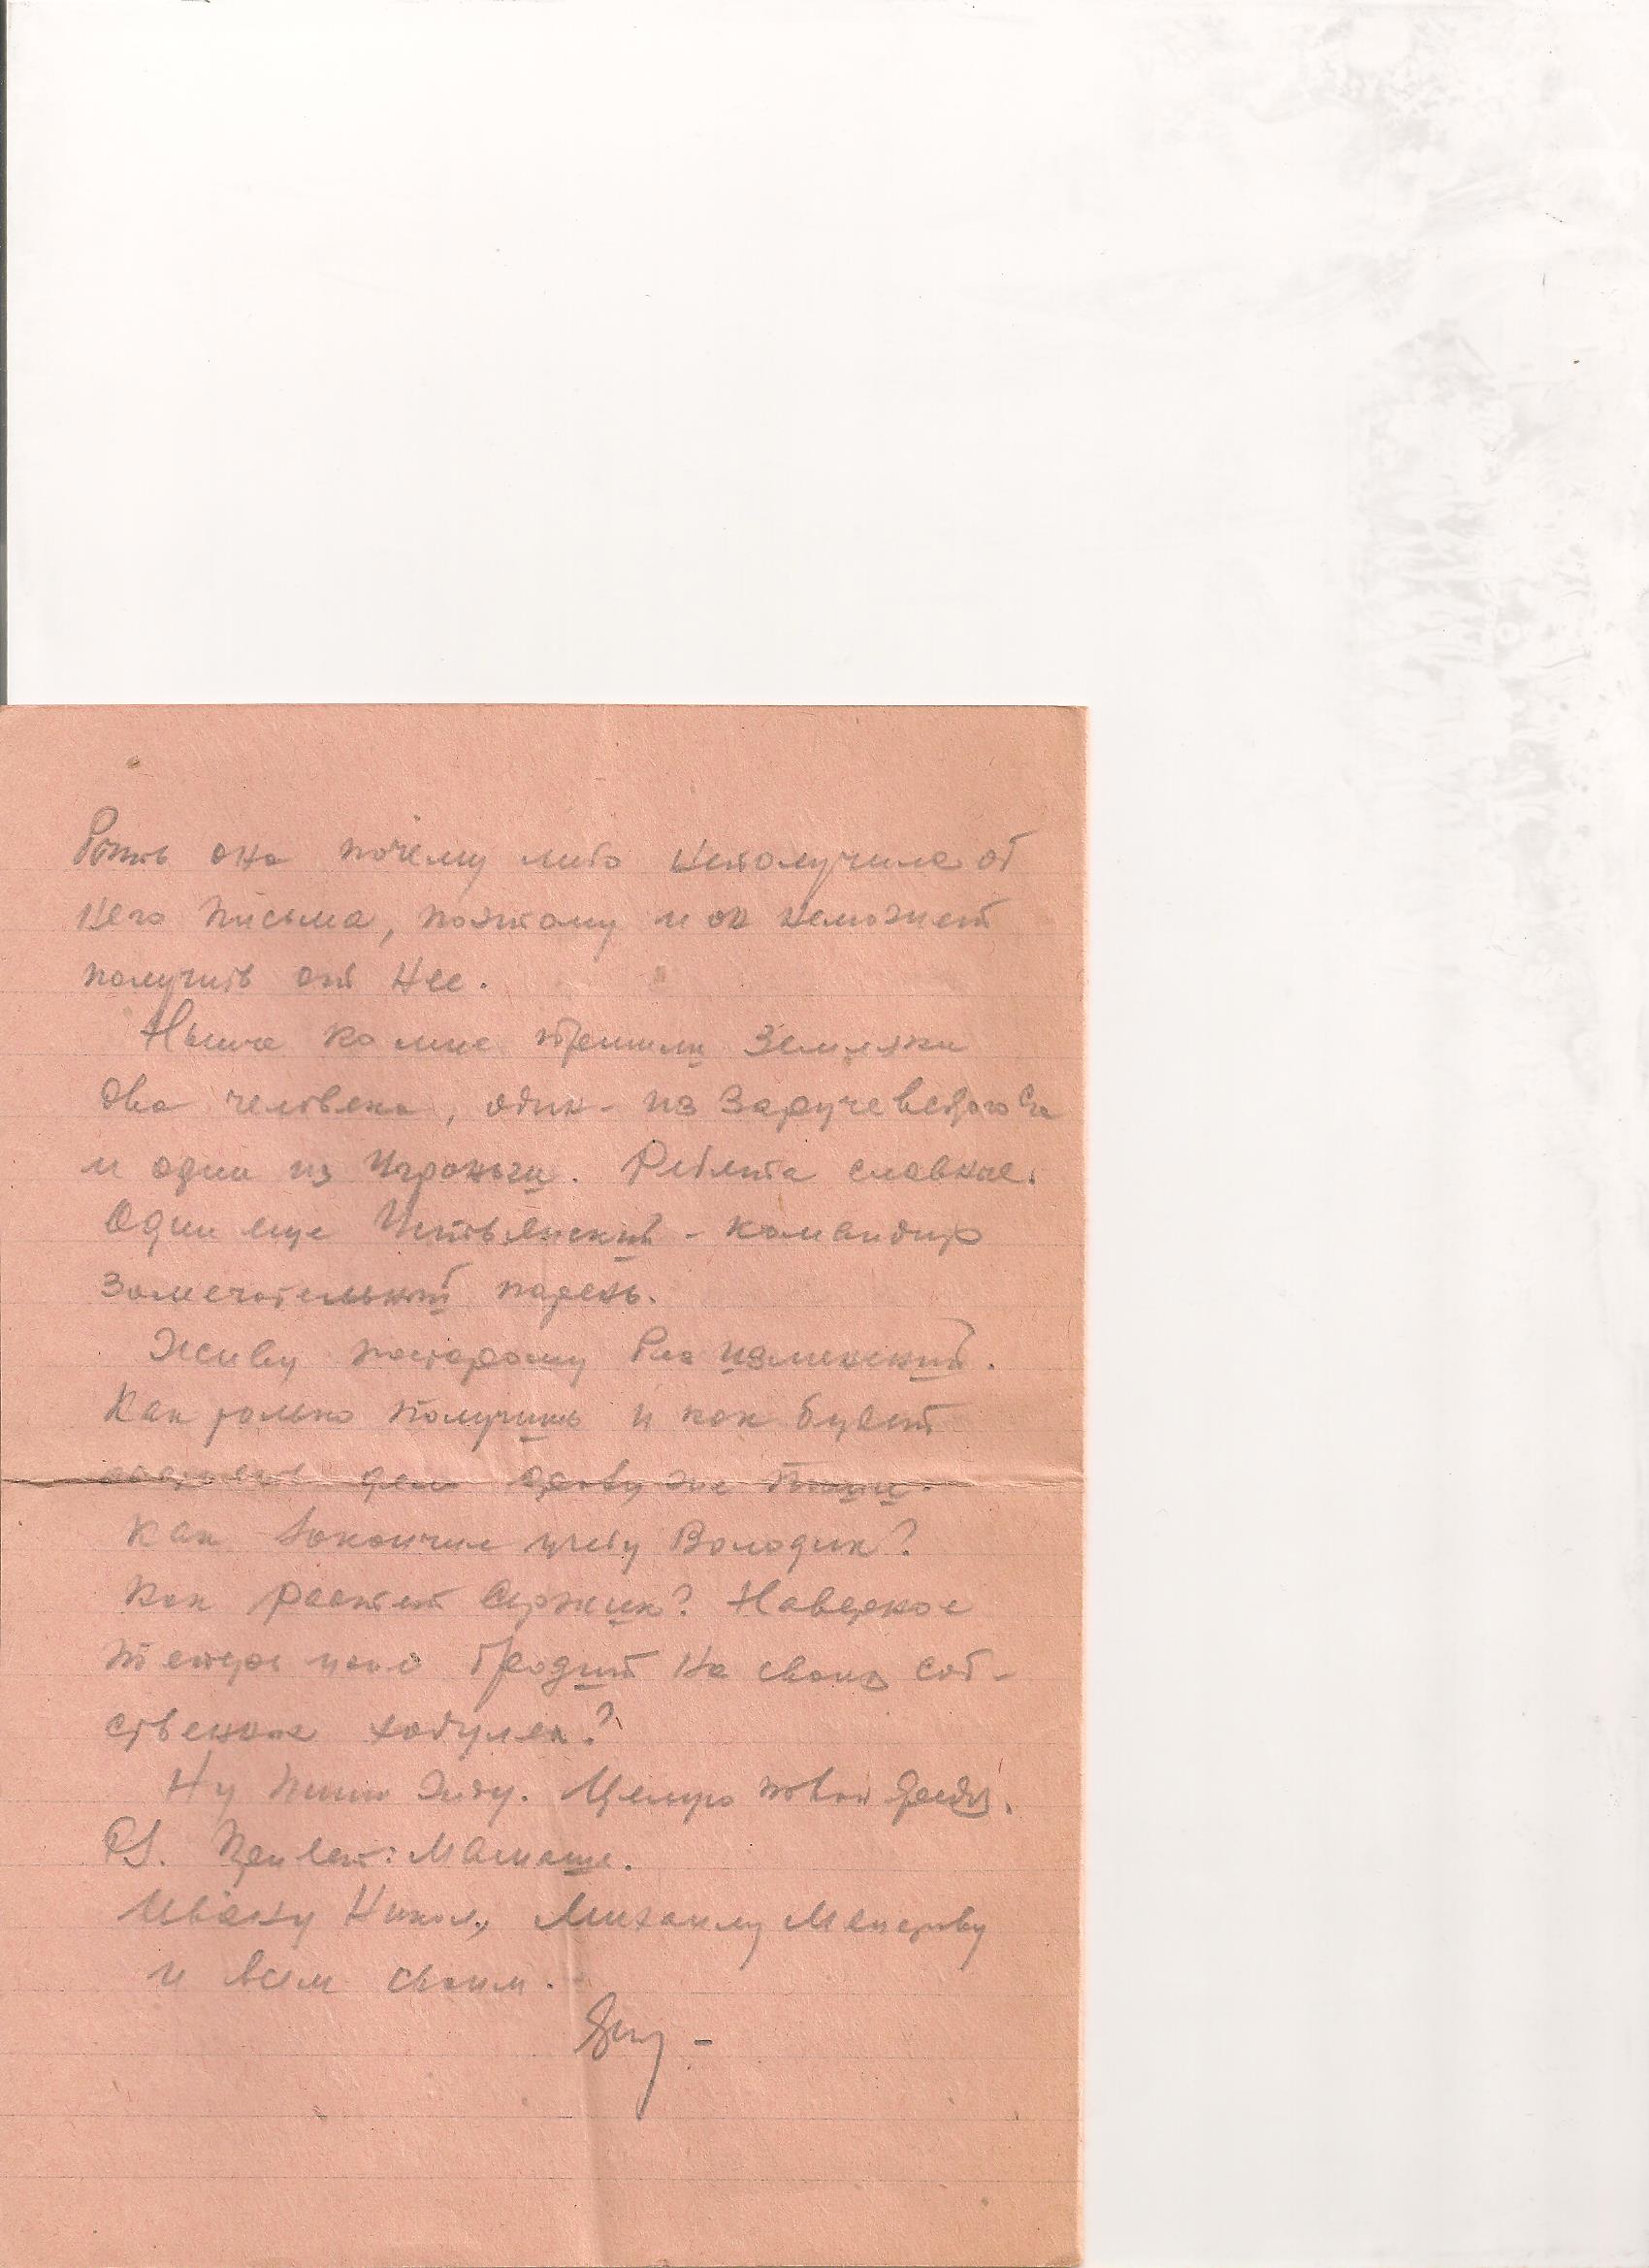 она почему либо неполучила от
него письма, поэтому и он неможет
получить от нее.
Нынче ко мне пришли земляки
два человека, один - из Заручевского С/с
и один из . Ребята славные.
Один еще Устьянский - командир
замечательный парень.
Живу постарому без изменений.
Как только получишь и как будет
дело сразу же пиши.
Как закончил учебу Володик?
Как растет Сержик? Наверное
теперь уже бродит на своих соб-
ственных ходулях?
Ну пиши жду. Целую твой
PS. Привет: Мамаше.
Ивану Никол., Михаилу
и всем своим.